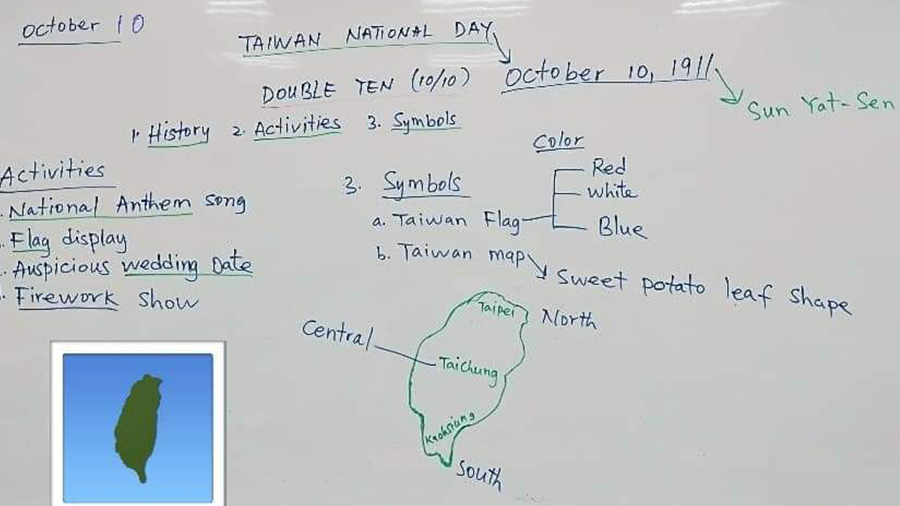 October 10
TAIWAN NATIONAL DAY
DOUBLE TEN (10/10) October 10, 1911
Sun Yat-Sen
1. History 2. Activities 3. Symbols
Activities
National Anthem song
Flag display
Auspicious wedding Date
Firework show
3. Symbols
Color
a. Taiwan Flag
Red
White
Blue
b. Taiwan map
Sweet potato leaf shape
Taipei North
Central
Taichung
Kaohsiung
South